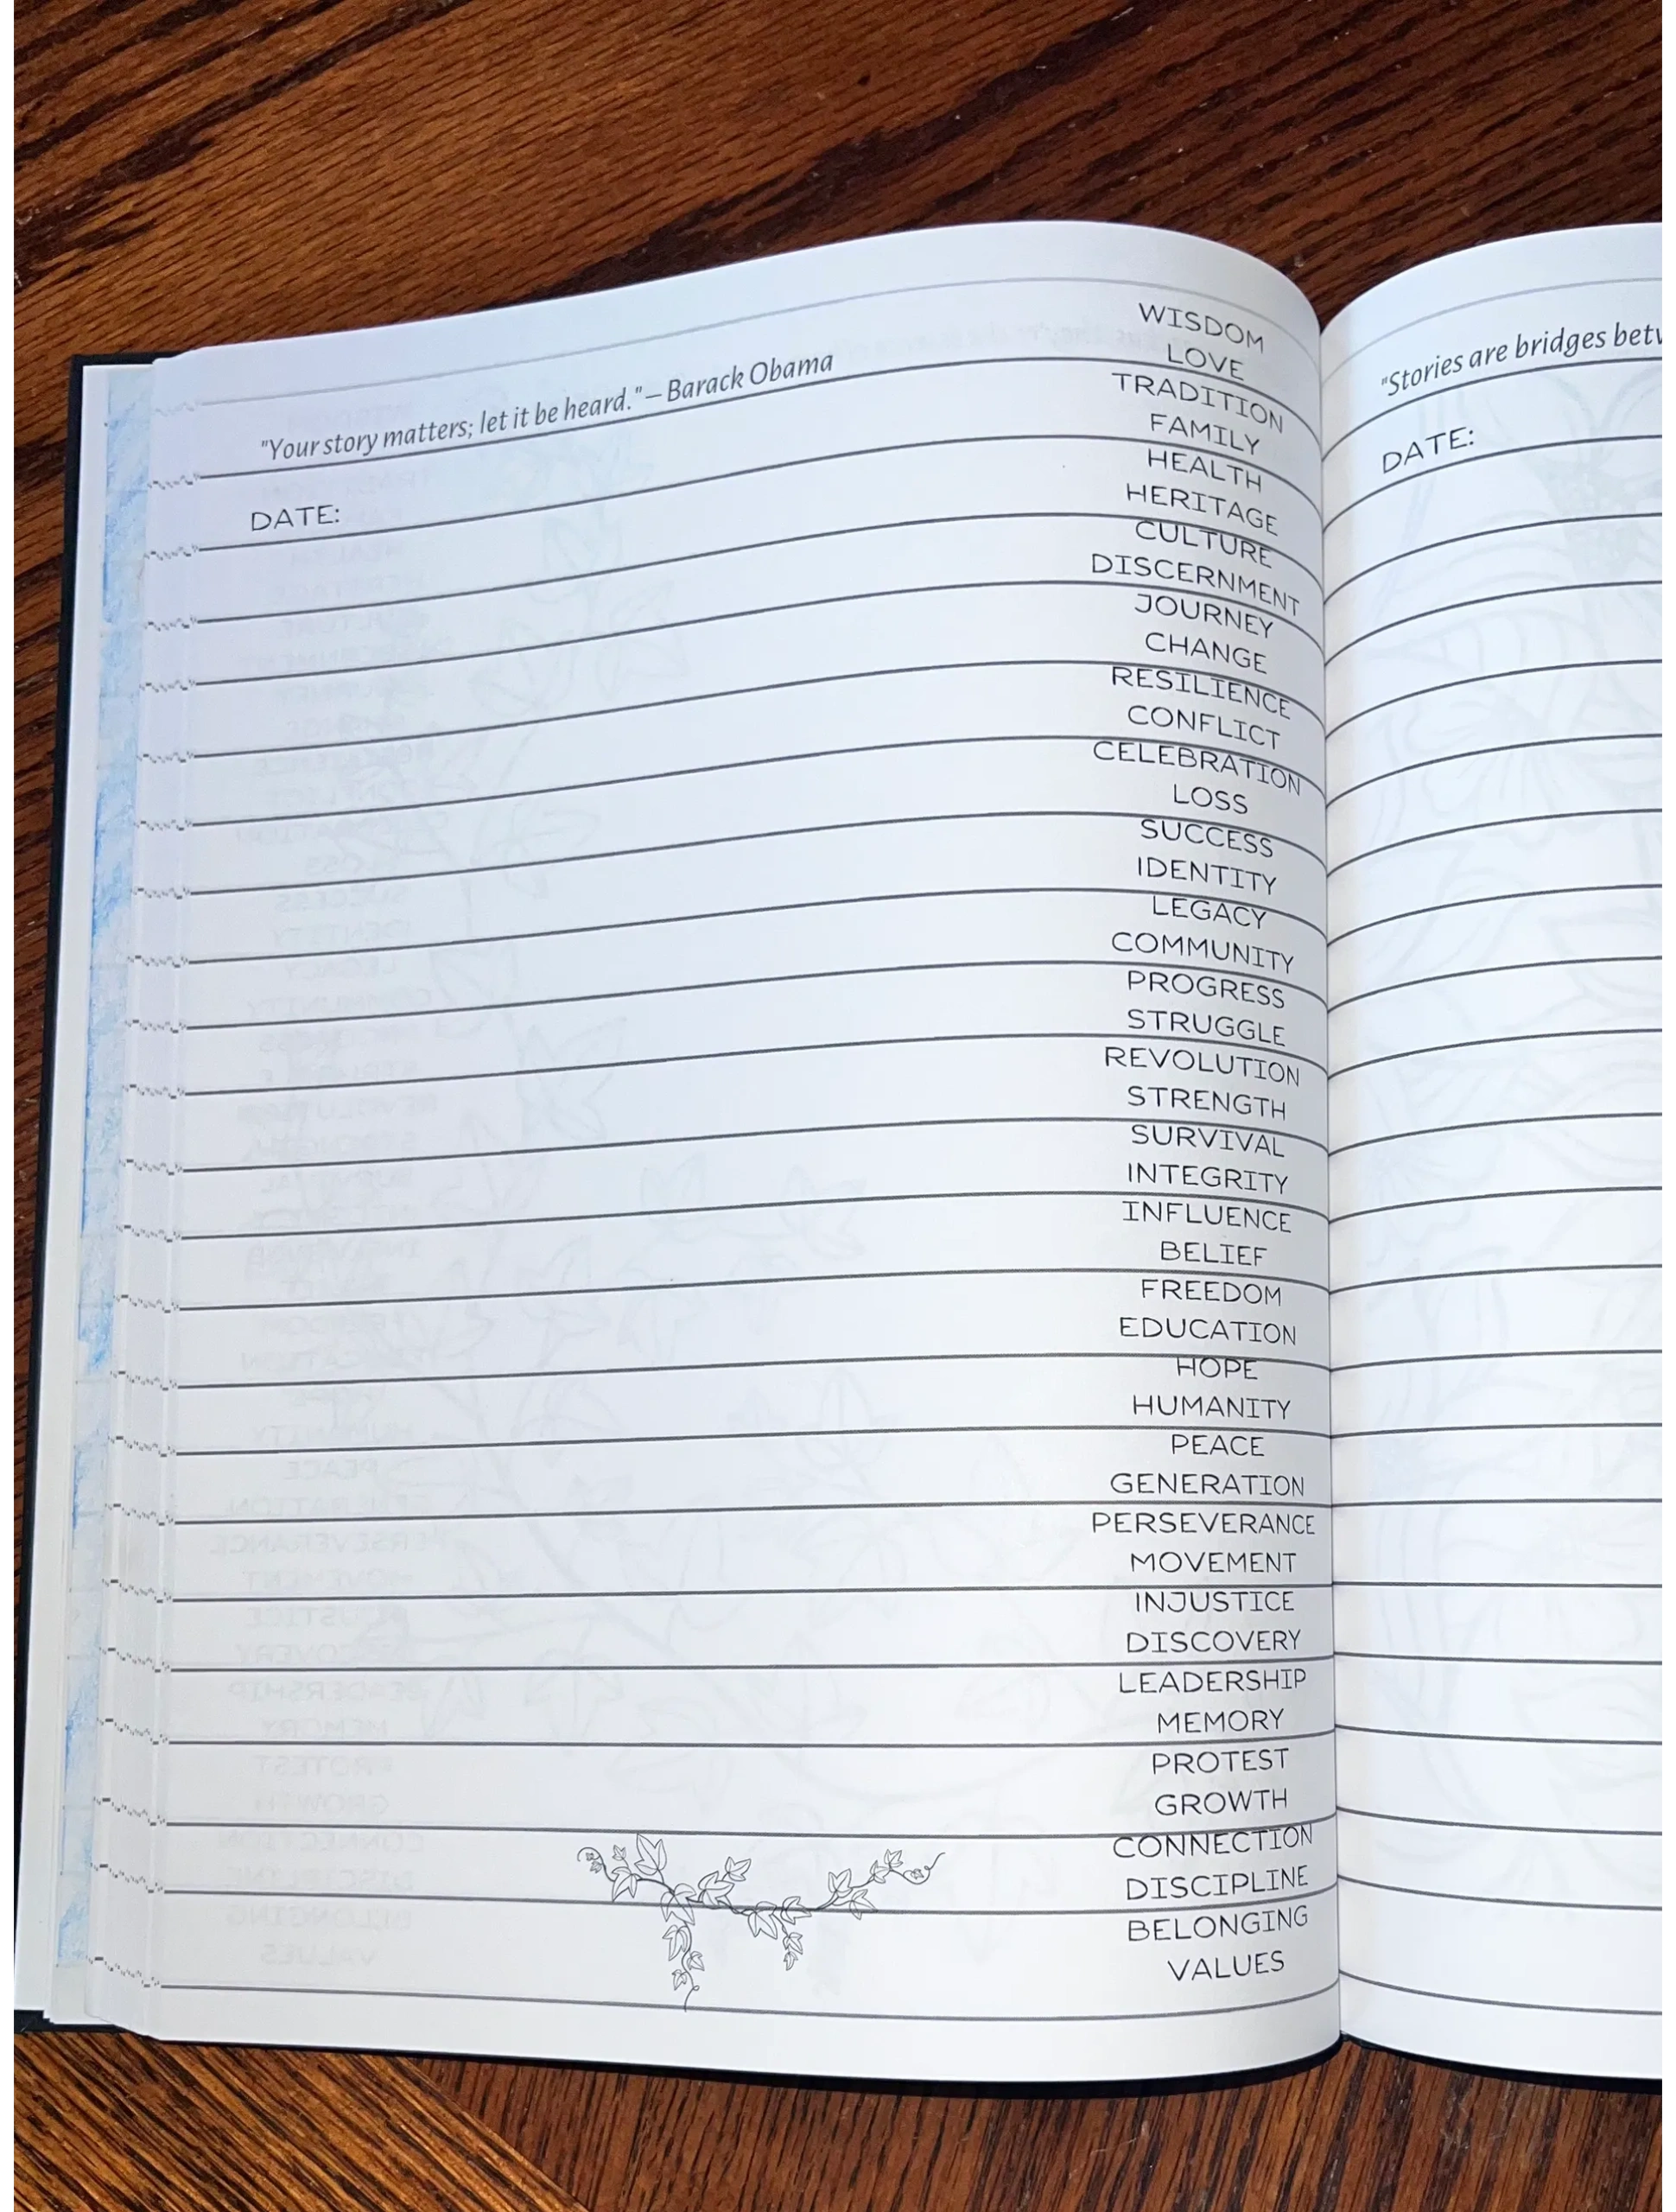 "Your story matters; let it be heard." – Barack Obama
DATE:
WISDOM
LOVE
TRADITION
FAMILY
HEALTH
HERITAGE
CULTURE
DISCERNMENT
JOURNEY
CHANGE
RESILIENCE
CONFLICT
CELEBRATION
LOSS
SUCCESS
IDENTITY
LEGACY
COMMUNITY
PROGRESS
STRUGGLE
REVOLUTION
STRENGTH
SURVIVAL
INTEGRITY
INFLUENCE
BELIEF
FREEDOM
EDUCATION
HOPE
HUMANITY
PEACE
GENERATION
PERSEVERANCE
MOVEMENT
INJUSTICE
DISCOVERY
LEADERSHIP
MEMORY
PROTEST
GROWTH
CONNECTION
DISCIPLINE
BELONGING
VALUES
"Stories are bridges
DATE: